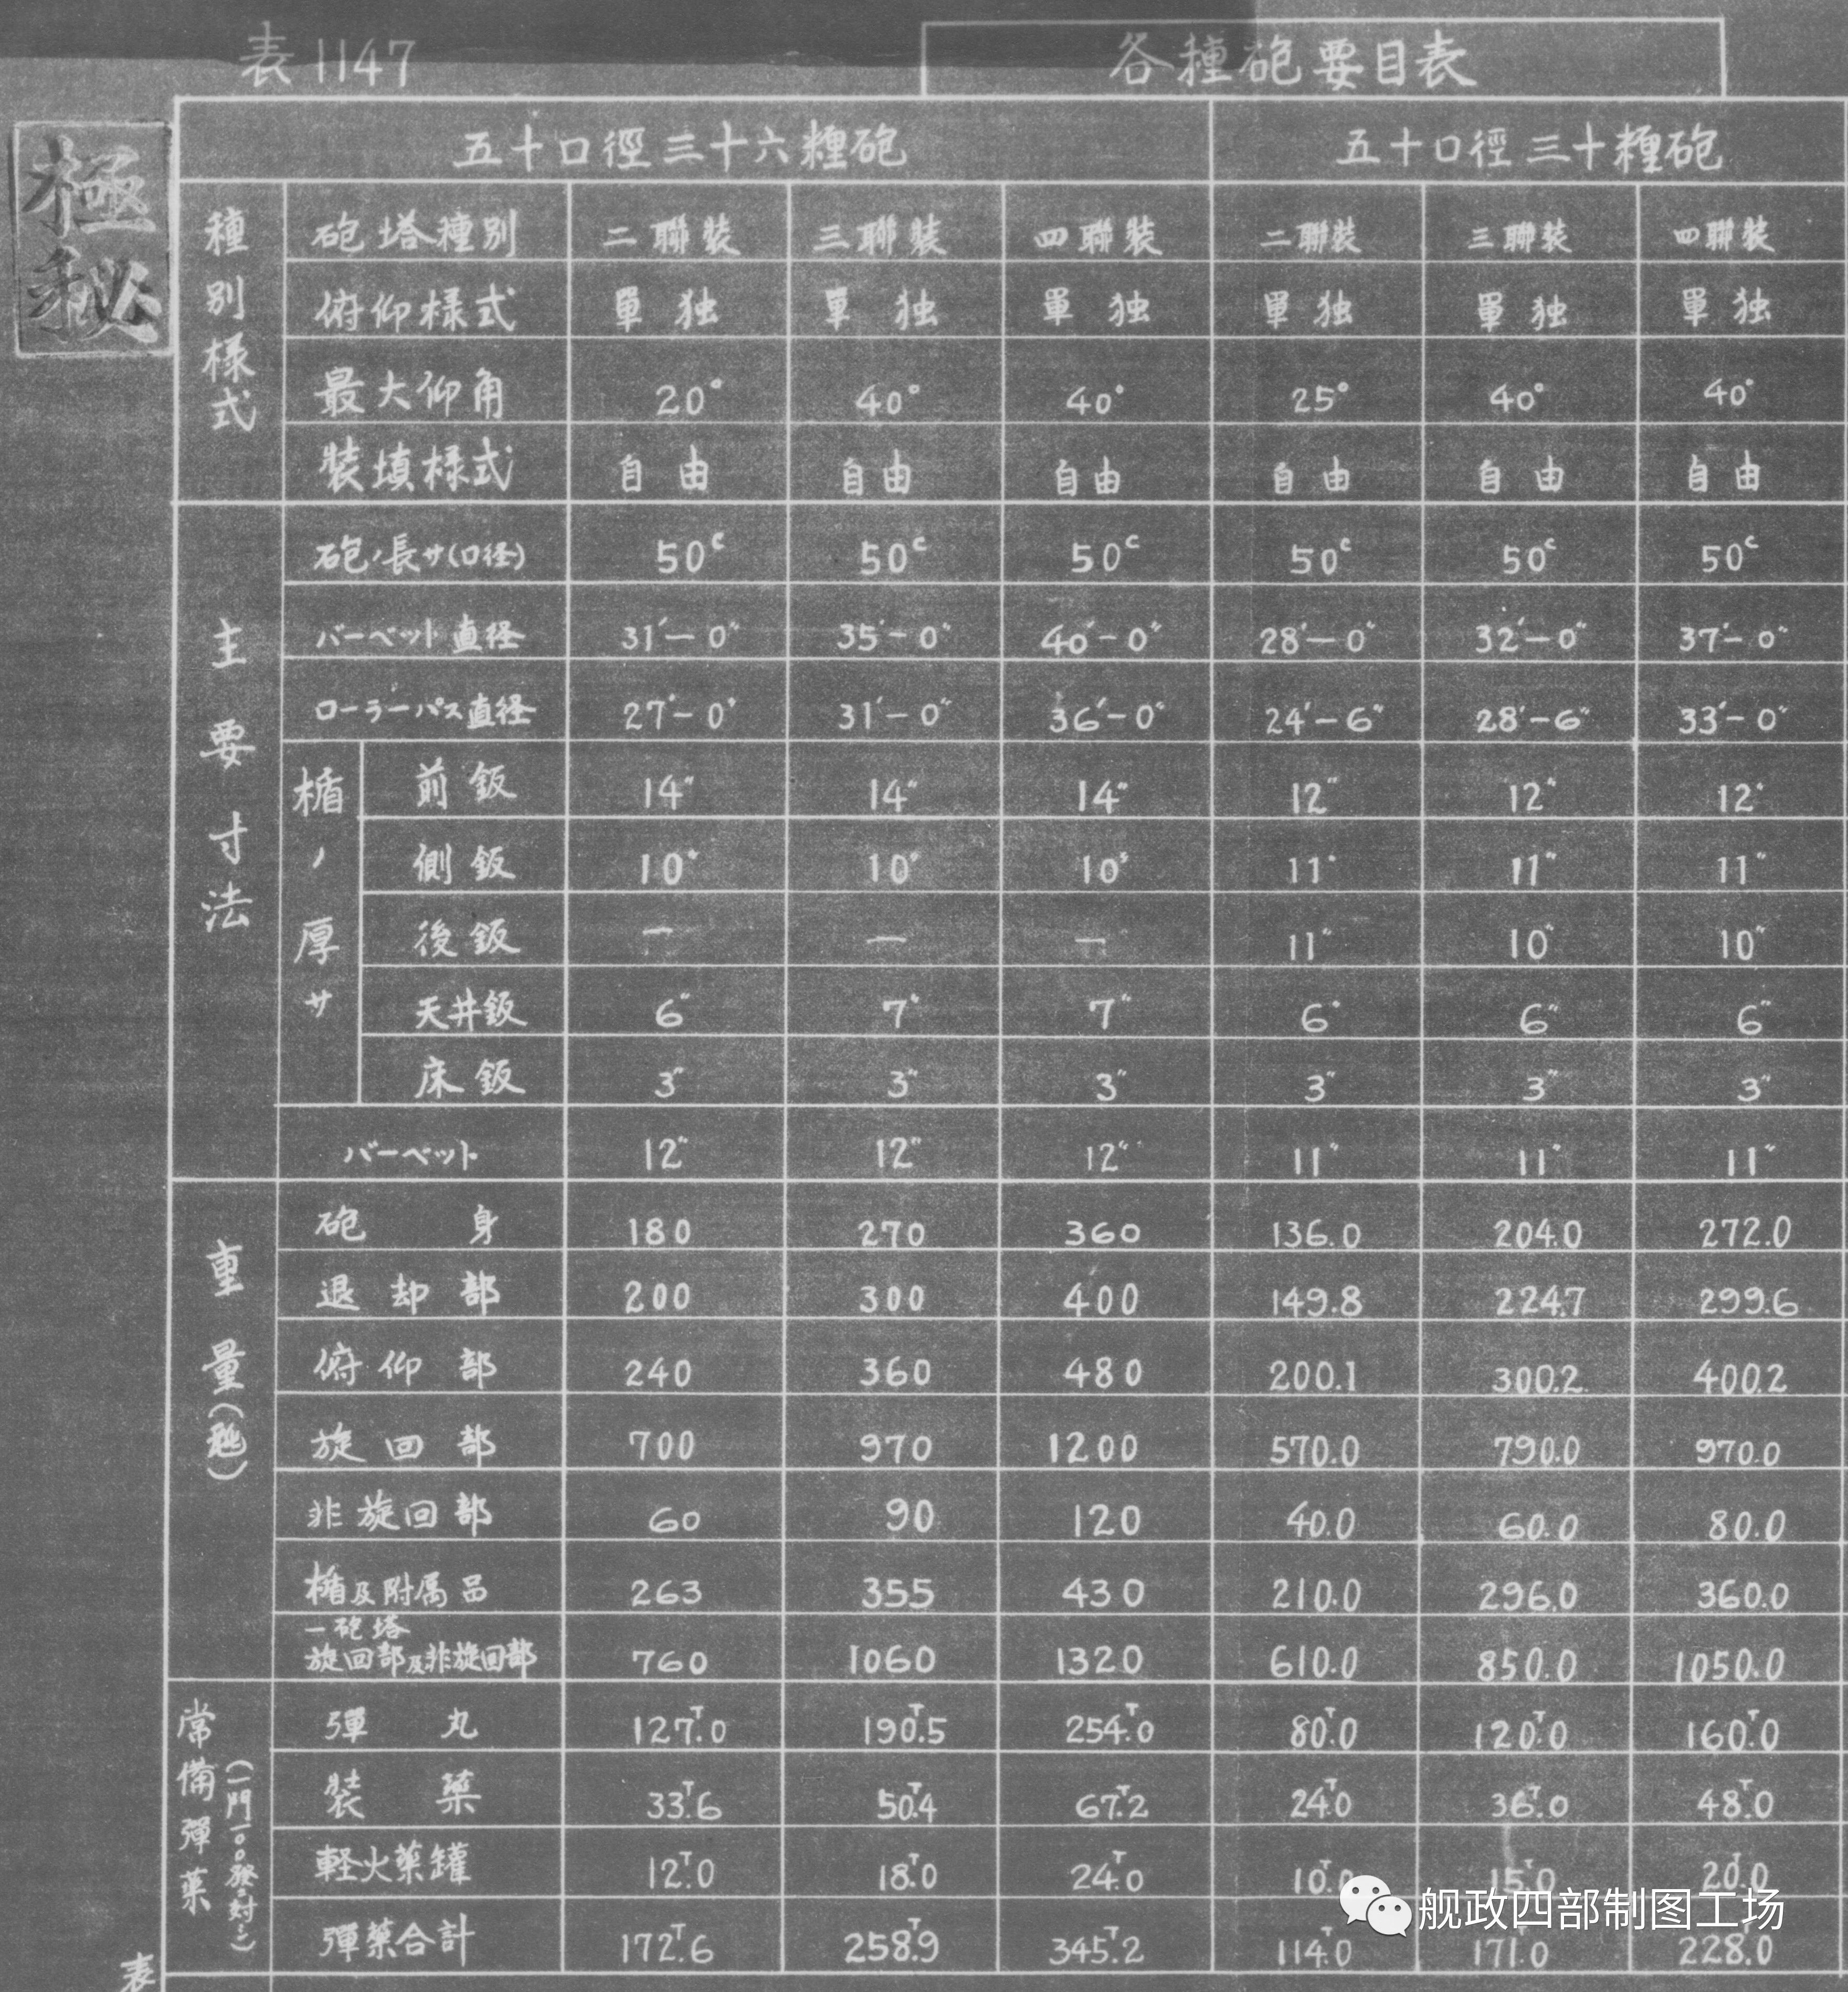 表1147
各種砲要目表
極秘
五十口徑三十六糎砲 五十口徑三十糎砲
種別樣式
砲塔種別 二聯裝 三聯裝 四聯裝 二聯裝 三聯裝 四聯裝
俯仰樣式 單独 單独 單独 單独 單独 單独
最大仰角 20° 40° 40° 25° 40° 40°
裝填樣式 自由 自由 自由 自由 自由 自由
主要寸法
砲ノ長サ(口径) 50c 50c 50c 50c 50c 50c
バーベット直径 31'-0" 35'-0" 40'-0" 28'-0" 32'-0" 37'-0"
ローラーパス直径 27'-0" 31'-0" 36'-0" 24'-6" 28'-6" 33'-0"
楯ノ厚サ
前鈑 14" 14" 14" 12" 12" 12"
側鈑 10" 10" 10" 11" 11" 11"
後鈑 — — — 11" 10" 10"
天井鈑 6" 7" 7" 6" 6" 6"
床鈑 3" 3" 3" 3" 3" 3"
バーベット 12" 12" 12" 11" 11" 11"
重量(瓲)
砲身 180 270 360 136.0 204.0 272.0
退却部 200 300 400 149.8 224.7 299.6
俯仰部 240 360 480 200.1 300.2 400.2
旋回部 700 970 1200 570.0 790.0 970.0
非旋回部 60 90 120 40.0 60.0 80.0
楯及附属品 263 355 430 210.0 296.0 360.0
一砲塔
旋回部及非旋回部 760 1060 1320 610.0 850.0 1050.0
常備彈薬
(一門一〇〇發ニ対シ)
彈丸 127.T0 190.T5 254.T0 80.T0 120.T0 160.T0
裝薬 33.T6 50.T4 67.T2 24.T0 36.T0 48.T0
軽火薬罐 12.T0 18.T0 24.T0 10.T0 15.T0 20.T0
彈薬合計 172.T6 258.T9 345.T2 114.T0 171.T0 228.T0
表
舰政四部制图工场